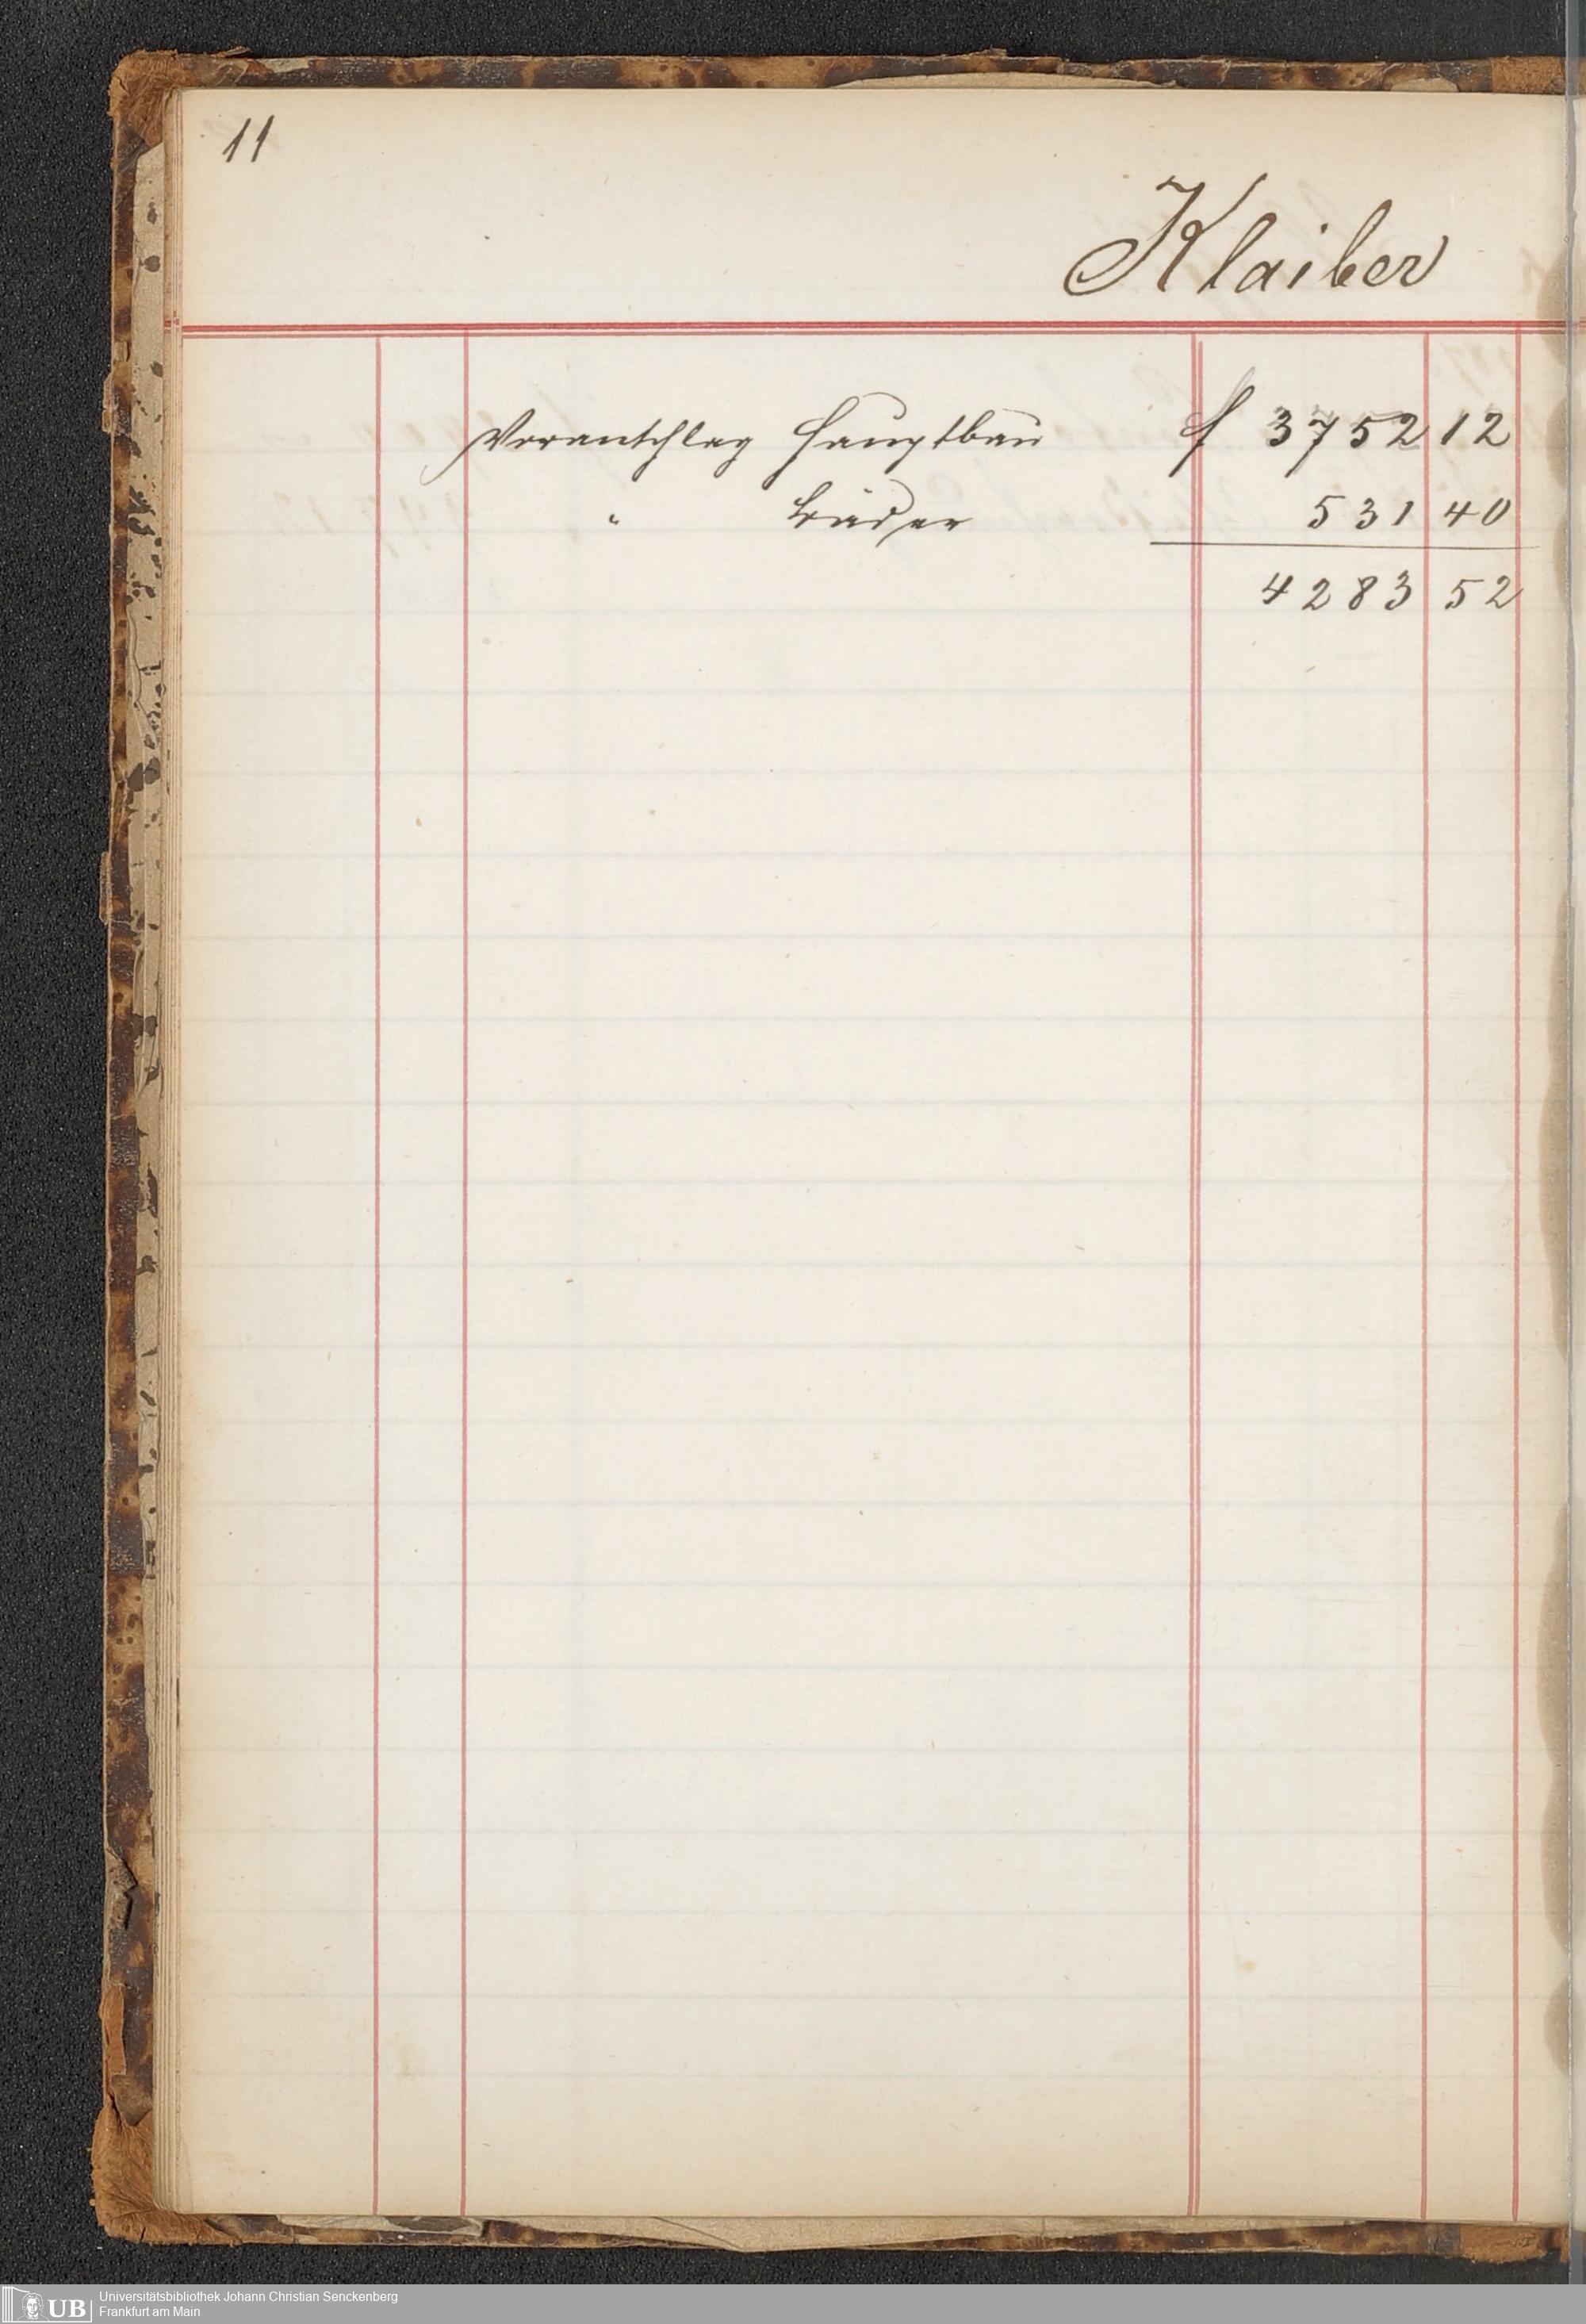 11
Klaiber
Voranschlag Hauptbau f 3752 12
" Bäder 531 40
4283 52
UB Universitätsbibliothek Johann Christian Senckenberg
Frankfurt am Main